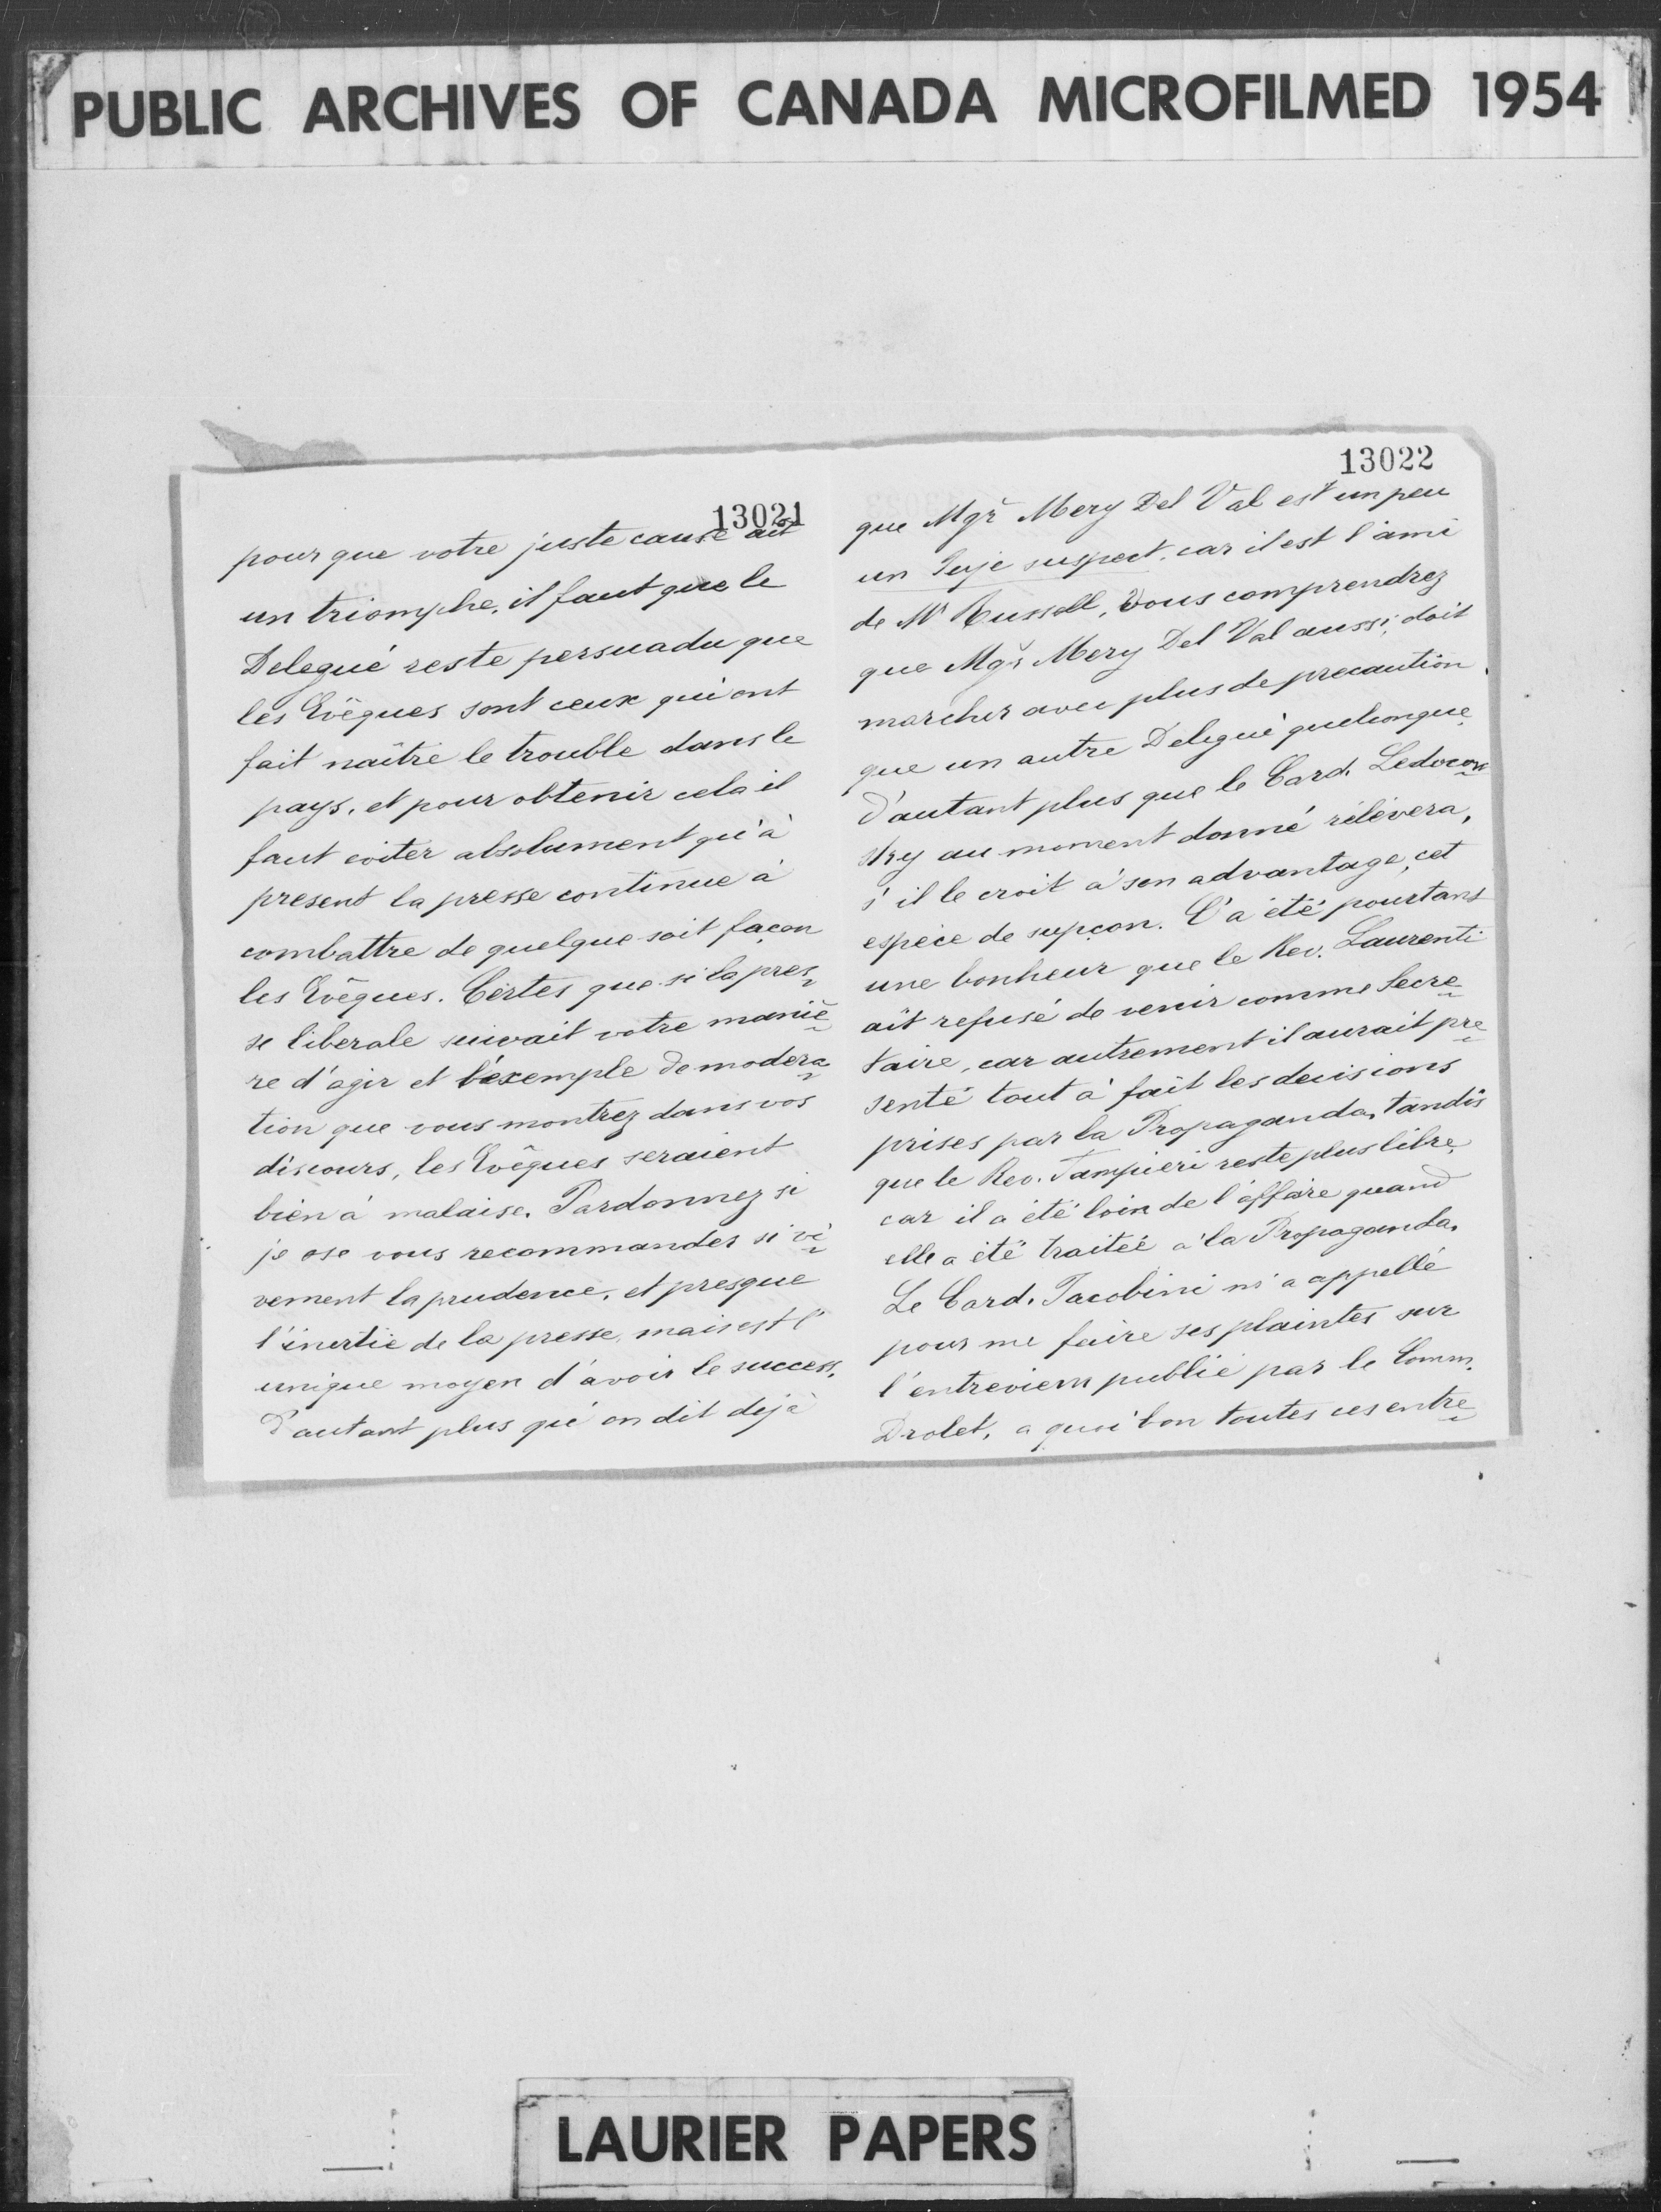 PUBLIC ARCHIVES OF CANADA MICROFILMED 1954
13021
pour que votre juste cause ait
un triomphe, il faut que le
Delegué reste persuadu que
les Evêques sont ceux qui ont
fait naître le trouble dans le
pays, et pour obtenir cela il
faut eviter absolument qu'à
present la presse continue à
combattre de quelque soit façon
les Evêques. Certes que si la pres
se liberale suivait votre maniè
re d'agir et l'exemple de modera
tion que vous montrez dans vos
discours, les Evêques seraient
bien à malaise. Pardonnez si
je ose vous recommander si vi
vement la prudence, et presque
l'inertie de la presse, mais est l'
unique moyen d'avoir le success.
D'autant plus qu'on dit dejà
13022
que Mgr Mery Del Val est un peu
un suje suspect, car il est l'ami
de Mr Russell, vous comprendrez
que Mgr Mery Del Val aussi, doit
marcher avec plus de precaution
que un autre Delegué quelconque
d'autant plus que le Card. Ledocow
stky au moment donné rélévera,
s'il le croit à son advantage, cet
espèce de supçon. C'a été pourtant
une bonheur que le Rev. Laurenti
aît refusé de venir comme Secre
taire, car autrement il aurait pre
senté tout à fait les decisions
prises par la Propaganda, tandis
que le Rev. Tampieri reste plus libre,
car il a été loin de l'affaire quand
elle a été traitée a la Propaganda.
Le Card. Jacobini m'a appellé
pour me faire ses plaintes sur
l'entreview publié par le Comm.
Drolet, a quoi bon toutes ces entre
LAURIER PAPERS